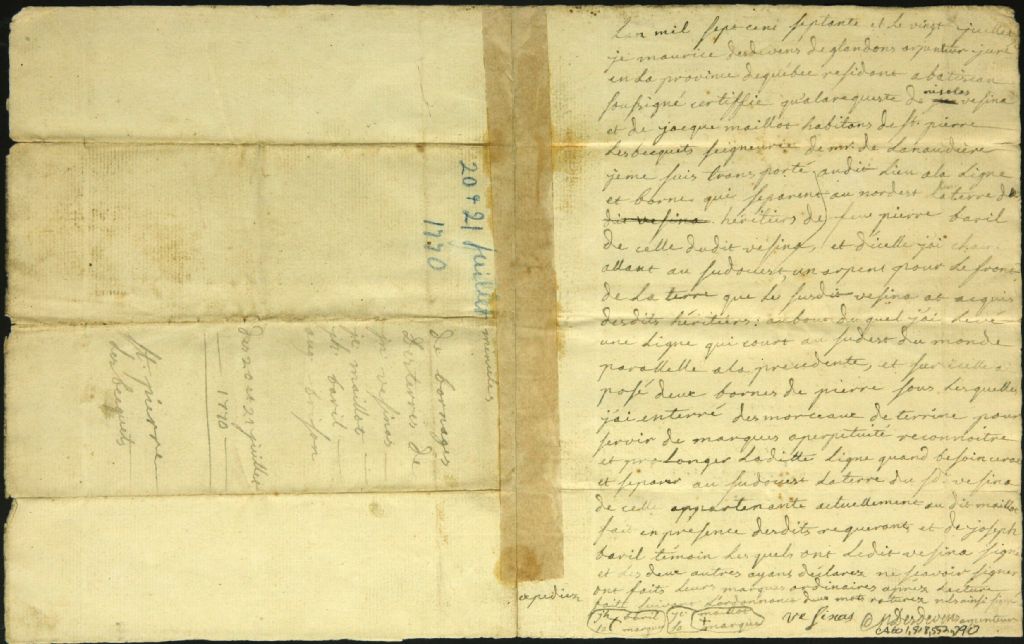 20 & 21 Juillet
1770
minutes
de bornages
des terres de
vesinas
je maillot
baril
des 20 et 21 juillet
1770
St. pierre
Les becquets
Lan mil sept cent septante et le vingt juillet
je maurice desdevens de glandons arpenteur juré
en La province de quebec residant a batiscan
soussigné certiffie qualarequeste de nicolas vesina
et de jacque maillot habitans de St. pierre
Les becquets seigneurie de mr. de Lanaudiere
jeme suis transporté audit Lieu ala Ligne
et bornes qui separent au nordest la terre des
dit vesina heritiers de feu pierre baril
de celle dudit vesina, et d'icelle j'ai chainé
allant au sudouest, un arpent pour Le front
de La terre que Le susdit vesina at acquis
desdits héritiers: aubout du quel j'ai Levé
une Ligne qui court au sudest du monde
parallelle ala precedente, et sur icelle a
posé deux bornes de pierre sous Lesquelles
j'ai enterré des morceaux de terrine pour
servir de marques aperpetuité reconnoitre
et prolonger Laditte Ligne quand besoin cerat
et separer au sudouest La terre du Sr. vesina
de celle appartenante actuellement au dit maillot
fait en présence desdits requerants et de joseph
baril témoin Lesquels ont Ledit vesina signé
et Les deux autres ayans déclarez ne sçavoir signer
ont faits Leurs marques ordinaires aprez Lecture
faite suivant L'ordonnance deux mots raturez nuls
expediez
baril
marque
maillot
+
marque
vesinas
Desdevens
arpenteur